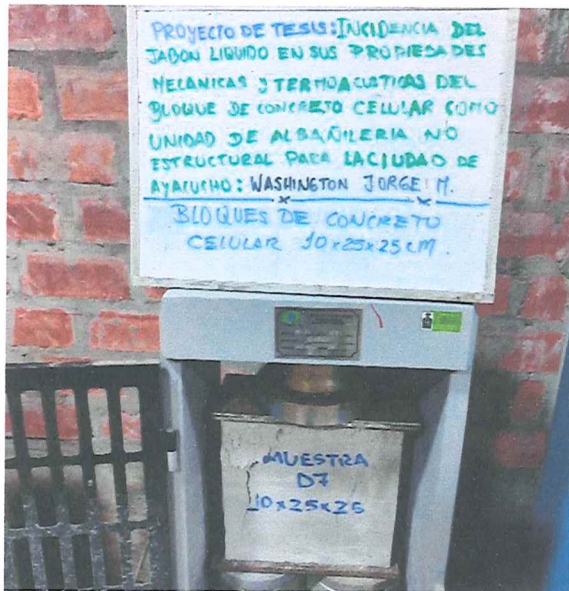 PROYECTO DE TESIS: INCIDENCIA DEL
JABON LIQUIDO EN SUS PROPIEDADES
MECANICAS Y TERMOACUSTICAS DEL
BLOQUE DE CONCRETO CELULAR COMO
UNIDAD DE ALBAÑILERIA NO
ESTRUCTURAL PARA LA CIUDAD DE
AYACUCHO: WASHINGTON JORGE M.
BLOQUES DE CONCRETO
CELULAR 10x25x25 cM.
MUESTRA
D7
10x25x25